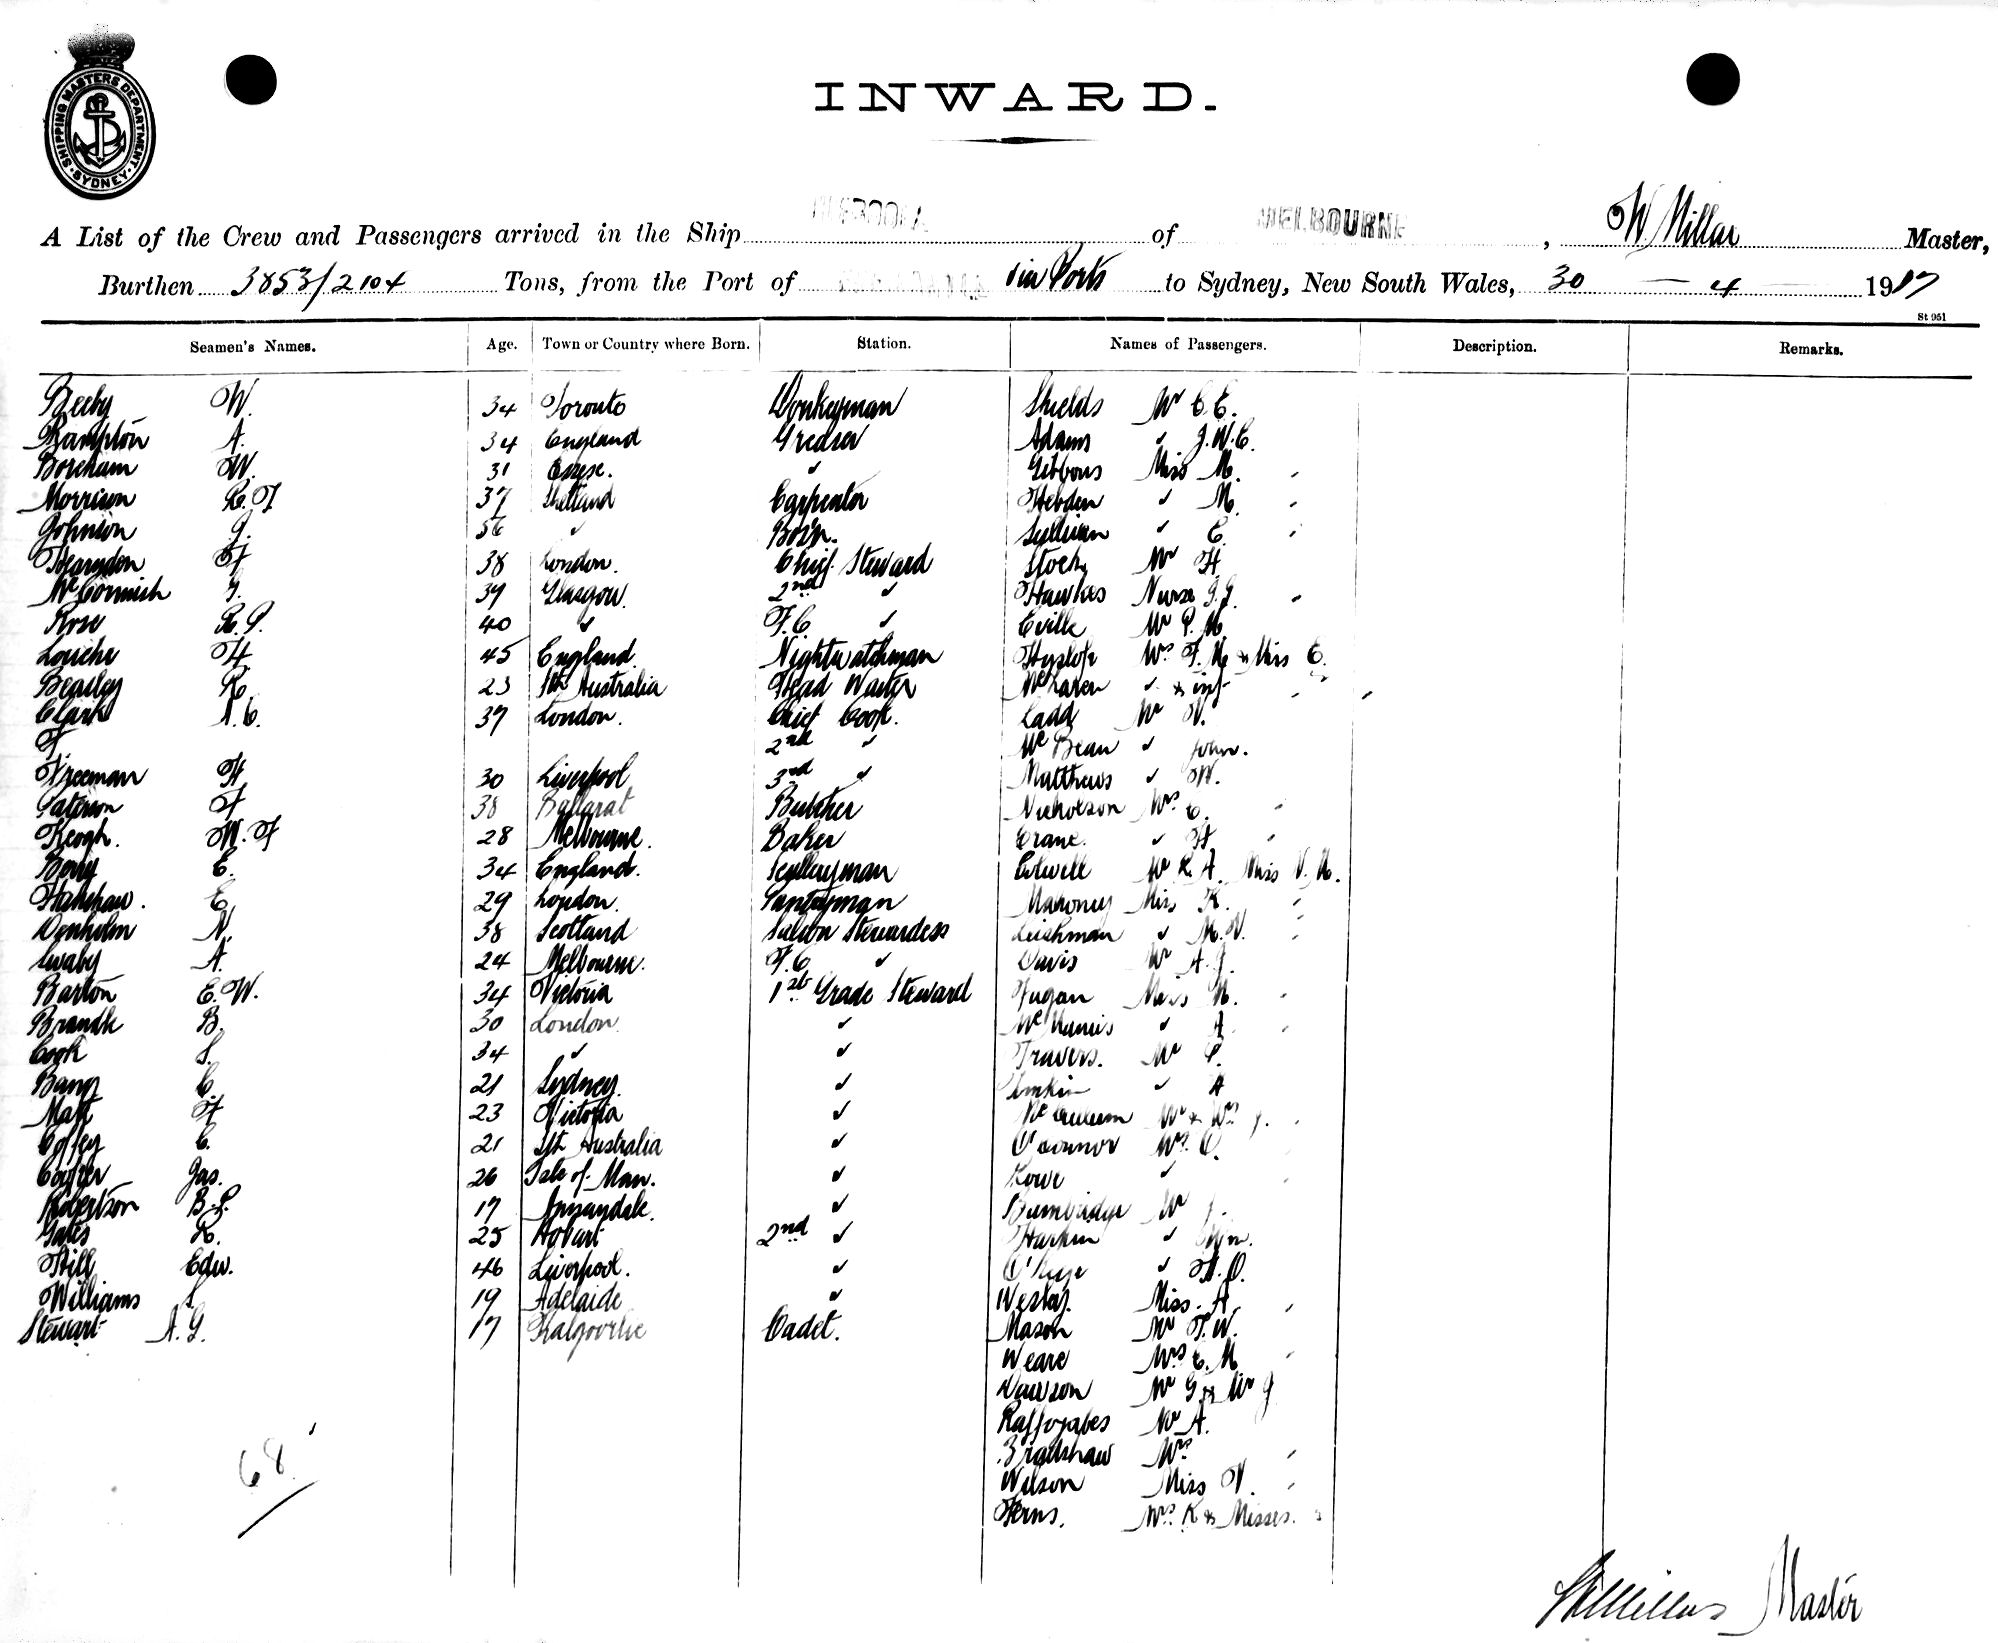 SHIPPING MASTERS DEPARTMENT. SYDNEY
INWARD.
A List of the Crew and Passengers arrived in the Ship of MELBOURNE, W Millar Master,
Burthen 3853/2104 Tons, from the Port of via Ports to Sydney, New South Wales, 30 - 4 1917
St 951
Seamen's Names. Age. Town or Country where Born. Station. Names of Passengers. Description. Remarks.
Beeby W. 34 Toronto Donkeyman Shields Mr C.E.
Rampton A. 34 England Greaser Adams " J.W.C.
Boreham W. 31 " Gibbons Miss M.
Morrison R.F 37 Shetland Carpenter Hebden " M.
Johnson J. 56 " Bos'n. Sullivan " C.
H 38 London. Chief Steward Stock Mr H
McCormish J. 39 Glasgow. 2nd " Hawkes Nurse J.J.
Rose R.P. 40 " F.C. " Eville Mr P.M.
H 45 England. Nightwatchman Hyslop Mrs F.M. & Miss C.
Beasley R. 23 Sth Australia Head Waiter McLaren " & inf
Clark A.C. 37 London. Chief Cook. Ladd Mr V.
F 2nd " McBean " John.
Freeman H 30 Liverpool 3rd " Matthews " W.
Paterson F 38 Ballarat Butcher Nicholson Mrs C.
Keogh. W.F 28 Melbourne. Baker Crane. " H
Berry E. 34 England. Sculleryman Mr R.A. Miss V.M.
Hanshaw. E. 29 London. Pantryman Mahoney Miss K.
Denholm N. 38 Scotland Saloon Stewardess Leishman " M.V.
Swaby A. 24 Melbourne. F.C. " Davis Mr A.J.
Barton E.W. 34 Victoria 1st Grade Steward Fugan Miss M.
Brandt B. 30 London. " McManis " A.
Cook S. 34 " " Travers. Mr P.
Bang C. 21 Sydney. " "
Matt H 23 Victoria " Mr & Mrs J.
Coffey C. 21 Sth Australia " O'Connor Mrs C.
Cowper Jas. 26 Isle of Man. " Lowe "
Robertson B.P. 17 Annandale. " Bumbridge Mr J.
Yates R. 25 Hobart 2nd " Harkin " Wm.
Hill Edw. 46 Liverpool. " "
Williams S 19 Adelaide " Wesley. Miss. A.
Stewart A.G. 17 Kalgoorlie Cadet. Mason Mr F.W.
Weare Mrs E.M
Dawson Mr G & Mr J
Mr A.
Bradshaw Mrs
Wilson Miss V.
Ferns. Mrs K & Misses.
68
W Millar Master